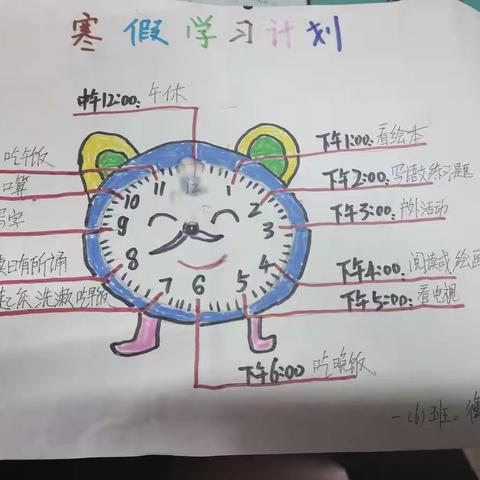 寒假学习计划
中午12:00: 午休
下午1:00: 看绘本
下午2:00: 写语数练习题
下午3:00: 户外活动
下午4:00: 阅读或绘画
下午5:00: 看电视
下午6:00 吃晚饭
吃午饭
口算
写字
读日有所诵
起床 洗漱 吃早饭
12
1
2
3
4
5
6
7
8
9
10
11
一(6)班。